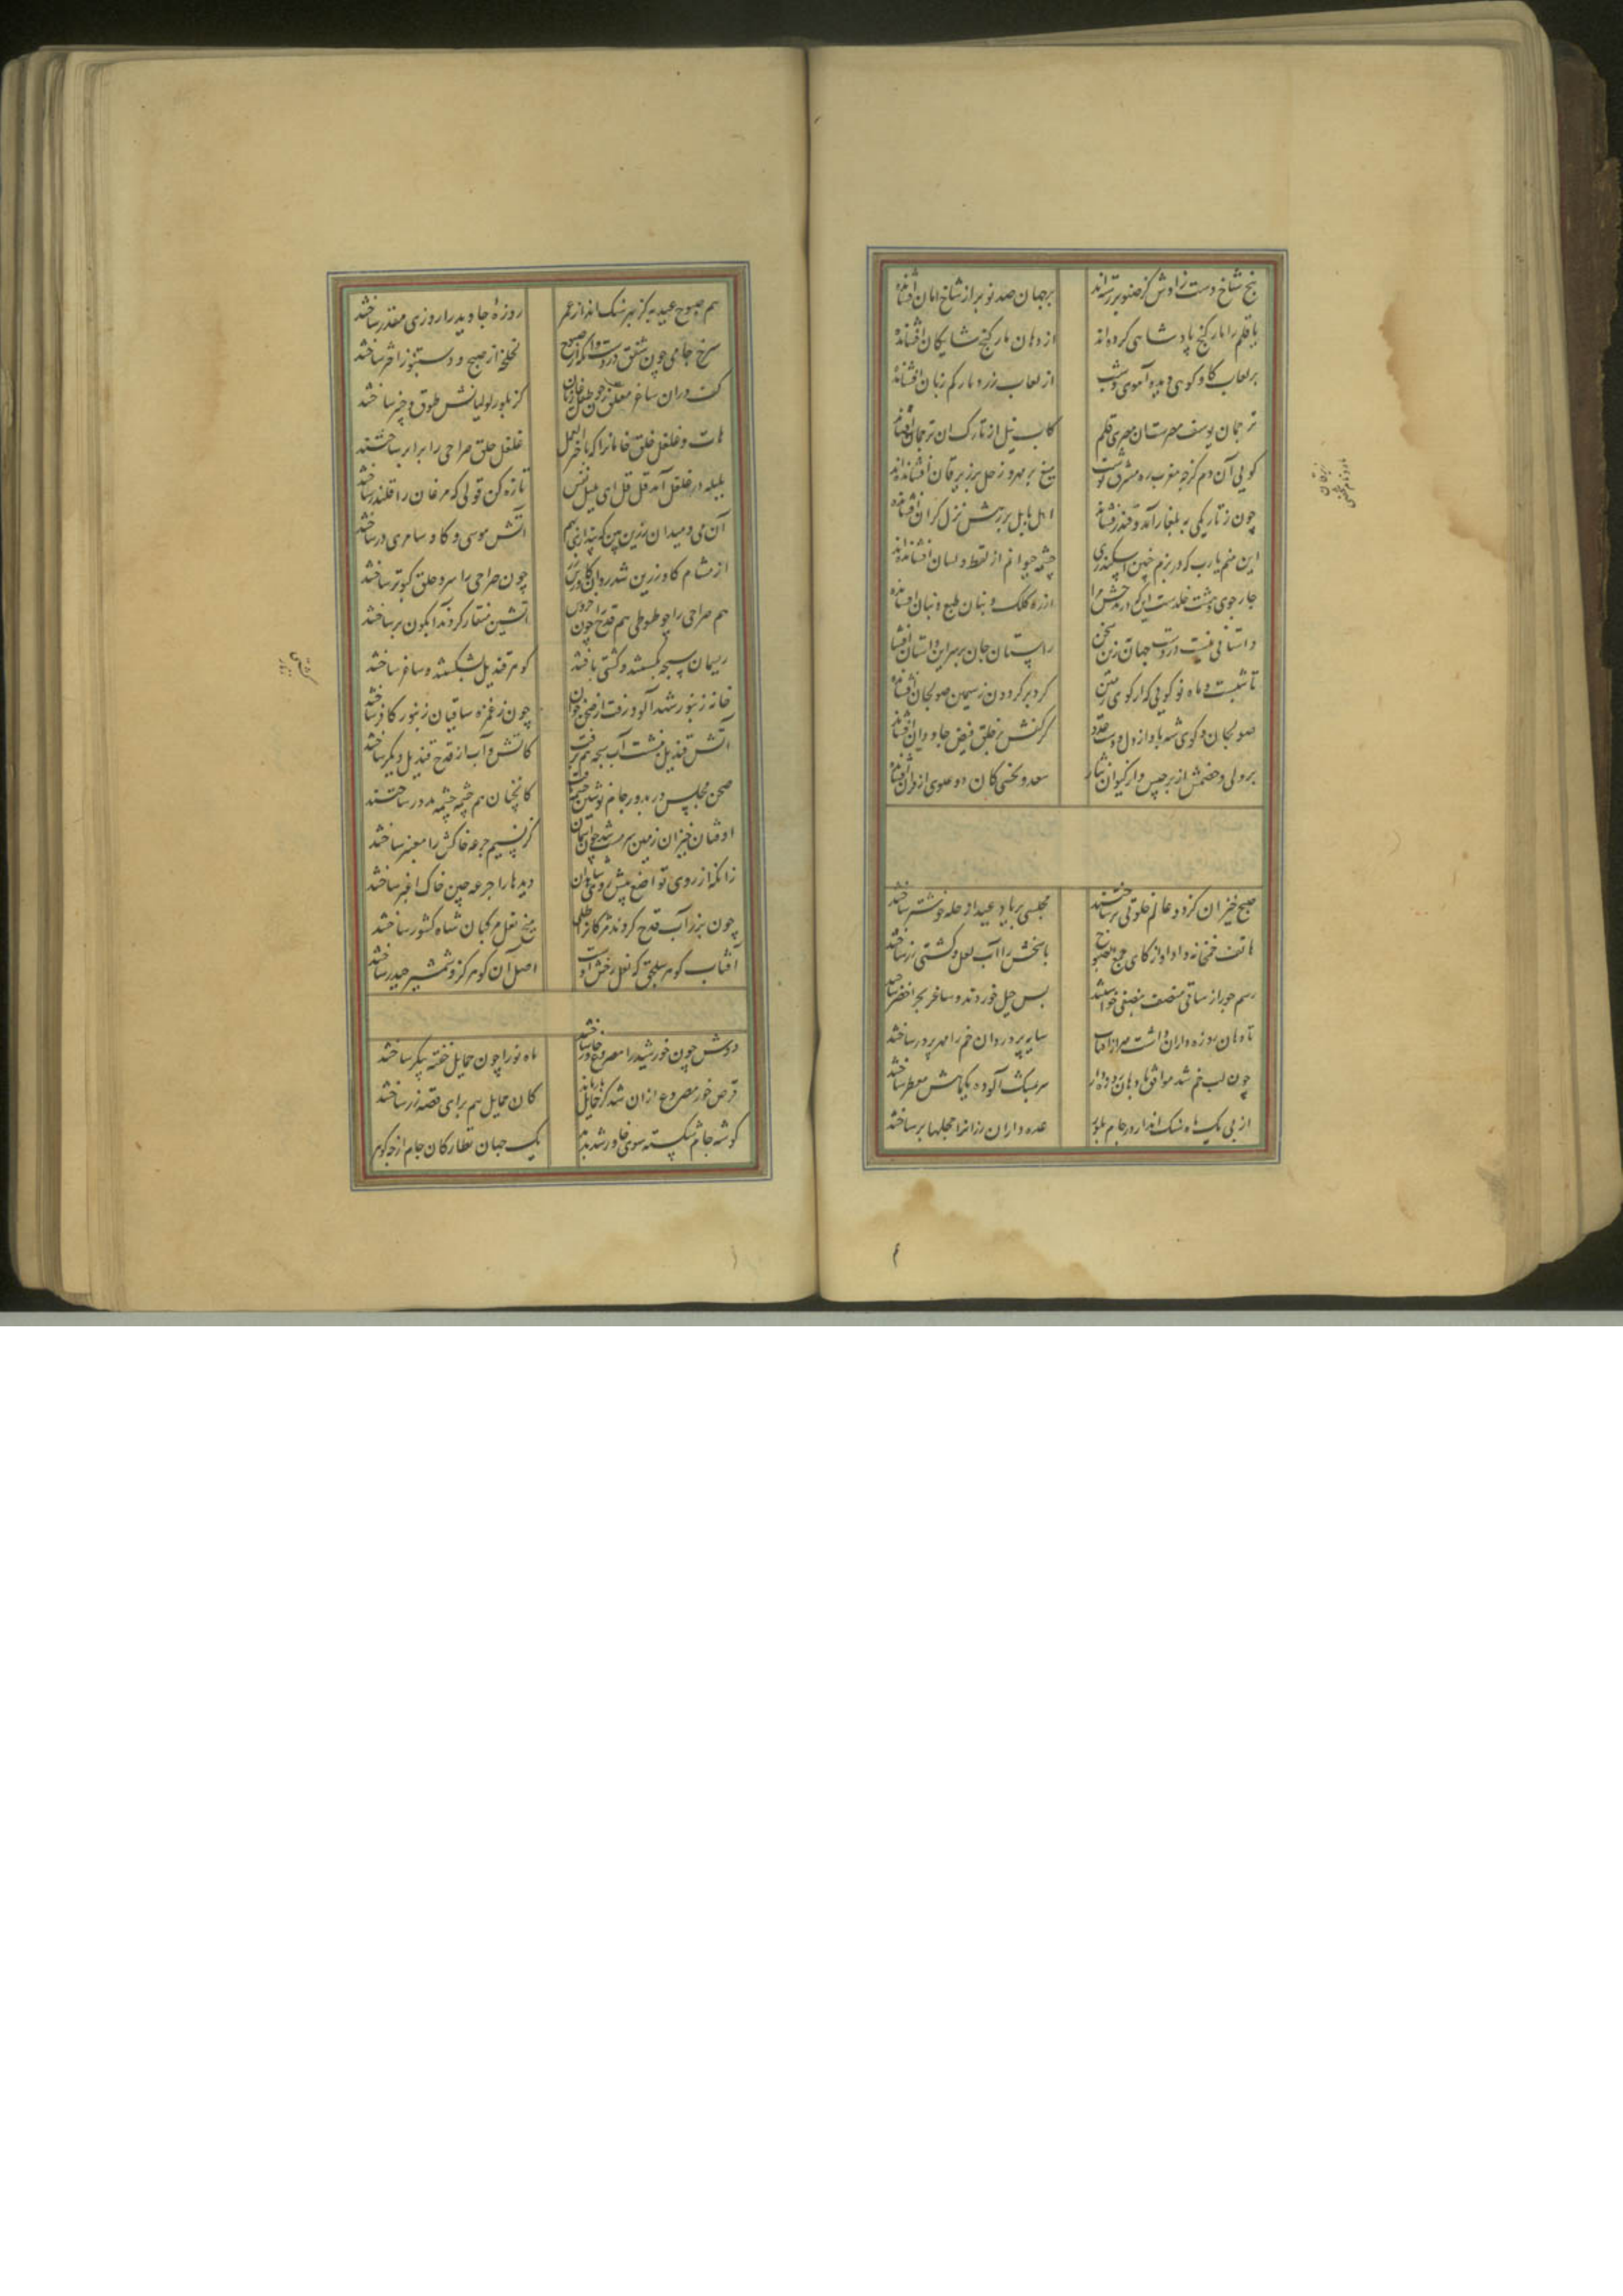 پنج شاخ دست رادش کز صنوبر رسته‌اند بر جهان صد نوبر از شاخ امان افشانده
با قلم را مار گنج پادشاهی کرده‌اند از دهان مار گنج شایگان افشانده
بر لعاب گاو کوهی دیده آهوی دشت از لعاب زرد مار کم زبان افشانده
ترجمان یوسف مصرستان مصری قلم کاب نیل از تارک آن ترجمان افشانده
گویی آن دم کز چه مغرب ره مشرق نوشت تیغ بر مهر و زحل بر زبرقان افشانده‌اند
چون ز تاریکی به بلغار آمد و قندز فشاند اهل بابل بر رهش نزل گران افشانده
این منم یارب که در بزم چنین اسکندری چشمه حیوانم از لفظ و لسان افشانده‌اند
چار جوی و هشت خلد است این که در مدحش مرا از ره کلک و بنان طبع و بنان افشانده
داستانی نیست در دست جهان زین سخن راستان جان بر سر این داستان افشانده
تا شبست و ماه نو گویی که از گوی زمین گرد بر گردون ز سیمین صولجان افشانده
صولجان و گوی شه باد از دل و پشت عدو کز کفش بر خلق فیض جاودان افشانده
بر ولی و خصمش از برجیس و از کیوان نثار سعد و نحسی کان دو علوی از قران افشانده
صبح خیزان کز دو عالم خلوتی بر ساختند مجلسی بر یاد عید از خلد خوشتر ساختند
هاتف خمخانه داد آواز کای جمع الصبوح پاسخش را آب لعل و کشتی زر ساختند
رسم جور از ساقی منصف بنصفی خواستند بس حیل خوردند و ساغر بحر اخضر ساختند
تا دهان روزه داران داشت مهر از آفتاب سایه پرورد روان خم را مهر پرور ساختند
چون لب خم شد موافق با دهان روزه‌دار سر بمشک آلوده یکماهش معطر ساختند
از پی یک ماه سنک‌انداز در جام بلور عده داران رزان را حجلها بر ساختند
هم صبوح عید به کز بهر سنگ انداز عمر روزه جاوید را روزی مقدر ساختند
سرخ جامی چون شفق در دست و آنگه از صبوح لخلخه از صبح و دستنبو ز اختر ساختند
کف در آن ساغر معلق زن چو طفل غازیان کز بلور لولیانش طوق و چنبر ساختند
هات و غلغل خلق خامان را که با خیر العمل غلغل حلق صراحی را برابر ساختند
بلبله در غلغل آمد قل قل ای بلبل نفس تازه کن قولی که مرغان را قلندر ساختند
آن می و میدان زرین بین که پنداری بهم آتش موسی و گاو سامری در ساختند
از مشام گاو زرین شد روان گاورس زر چون صراحی را سر و حلق کبوتر ساختند
هم صراحی را چو طوطی هم قدح را چون خروس آتشین منقار کردند آبگون بر ساختند
ریسمان سبحه بگسستند و کستی بافتند گوهر قندیل بشکستند و ساغر ساختند
خانه زنبور شهد آلود رفت از صحن خوان چون ز غمزه ساقیان زنبور کافر ساختند
آتش قندیل بنشست آب سبحه هم برفت کاتش و آب از قدح قندیل دیگر ساختند
صحن مجلس در مدور جام نوشین چشمه یافت کانچنان هم چشمه چشمه مدور ساختند
اوفتان خیزان زمین سرمست شد چون آسمان کز نسیم جرعه خاکش را معنبر ساختند
زانکه از روی تواضع پیش روی شاهدان دیدها را جرعه چین خاک اغبر ساختند
چون بزر آب قدح کردند مژگان را طلی میخ نعل مرکبان شاه کشور ساختند
آفتاب گوهر سلجق که نعل رخش اوست اصل آن گوهر کزو شمشیر حیدر ساختند
دوش چون خورشید را مصروع خاور ساختند ماه نو را چون حمایل خفته پیکر ساختند
قرص خور مصروع از آن شد کز حمایل باز ماند کان حمایل هم برای قصه زر ساختند
گوشه جام شکسته سوی خاور شد پدید یک جهان نظاره کان جام از چه گوهر